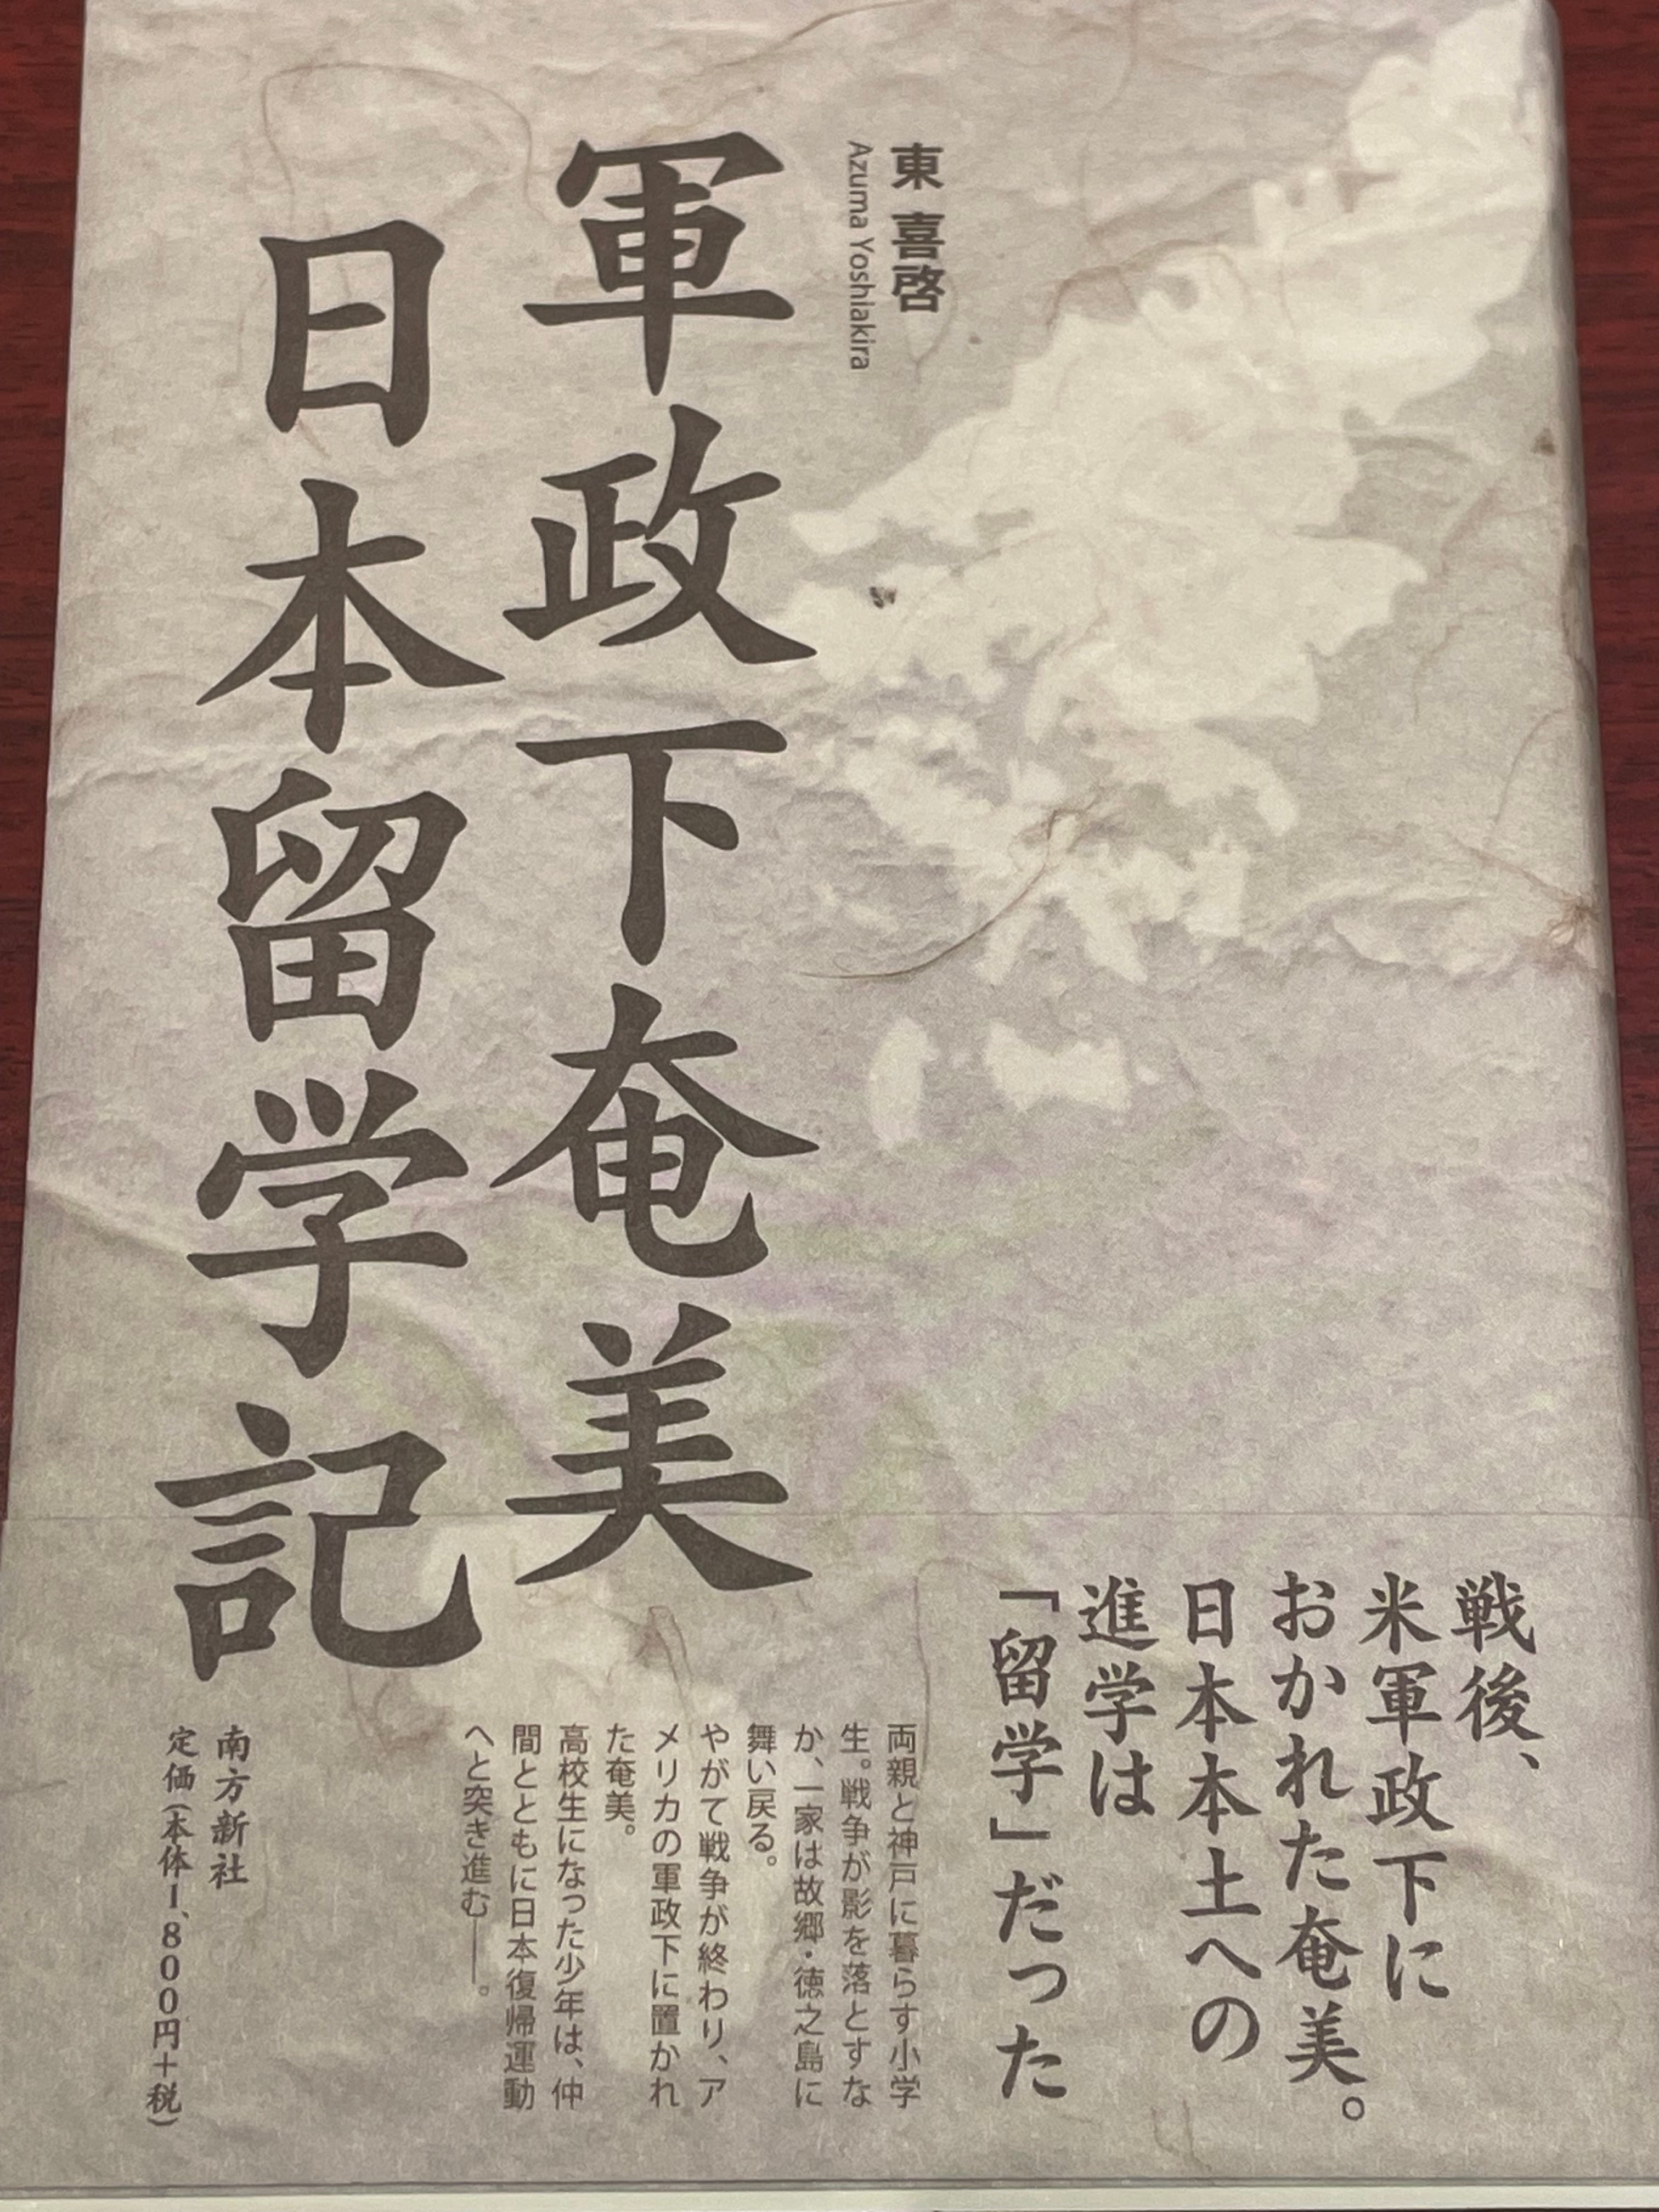 東 喜啓
Azuma Yoshiakira
軍政下奄美
日本留学記
戦後、
米軍政下に
おかれた奄美。
日本本土への
進学は
「留学」だった
両親と神戸に暮らす小学
生。戦争が影を落とすな
か、一家は故郷・徳之島に
舞い戻る。
やがて戦争が終わり、ア
メリカの軍政下に置かれ
た奄美。
高校生になった少年は、仲
間とともに日本復帰運動
へと突き進む──。
南方新社
定価(本体1,800円+税)